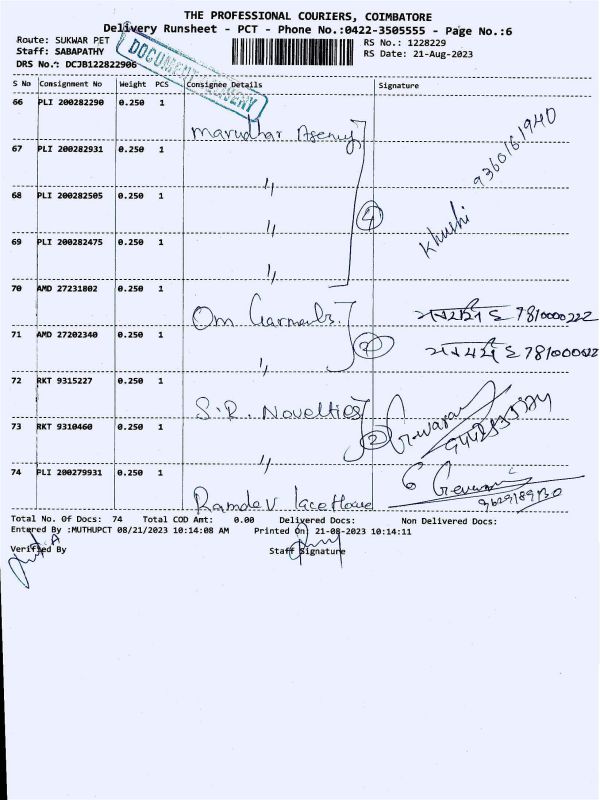 THE PROFESSIONAL COURIERS, COIMBATORE
Delivery Runsheet - PCT - Phone No.:0422-3505555 - Page No.:6
Route: SUKWAR PET
RS No.: 1228229
Staff: SABAPATHY
RS Date: 21-Aug-2023
DRS No.: DCJB122822906
DOCUMENT DELIVERY
S No Consignment No Weight PCS Consignee Details Signature
66 PLI 200282290 0.250 1 Marudhar Agency
67 PLI 200282931 0.250 1 〃
68 PLI 200282505 0.250 1 〃
69 PLI 200282475 0.250 1 〃
4
Khushi 9360161940
70 AMD 27231802 0.250 1 Om Garments. 7810000222
71 AMD 27202340 0.250 1 〃 2
72 RKT 9315227 0.250 1 S.R. Novelties
73 RKT 9310460 0.250 1 〃 2
74 PLI 200279931 0.250 1 Ramdev lace House
Total No. Of Docs: 74 Total COD Amt: 0.00 Delivered Docs: Non Delivered Docs:
Entered By :MUTHUPCT 08/21/2023 10:14:08 AM Printed On 21-08-2023 10:14:11
Verified By Staff Signature